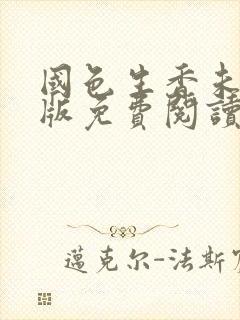 國色生香未
版免費閱讀
邁克尔-法斯宾